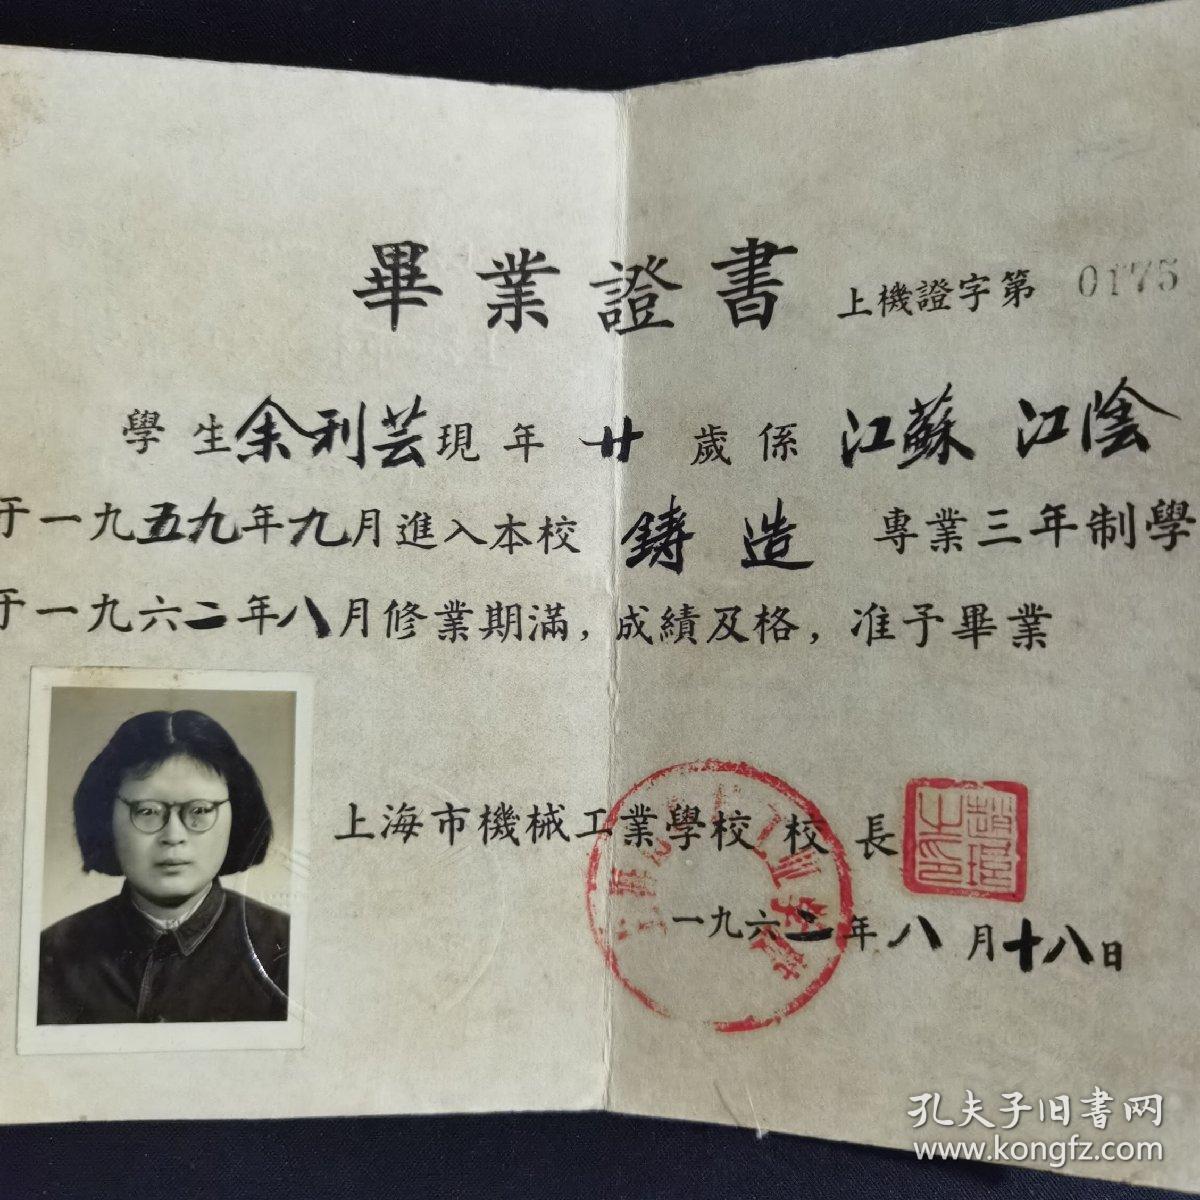 畢業證書
上機證字第 0175
學生余利芸現年廿歲係江蘇江陰
于一九五九年九月進入本校鑄造專業三年制學
于一九六二年八月修業期滿，成績及格，准予畢業
上海市機械工業學校 校長
一九六二年八月十八日
孔夫子旧书网
www.kongfz.com